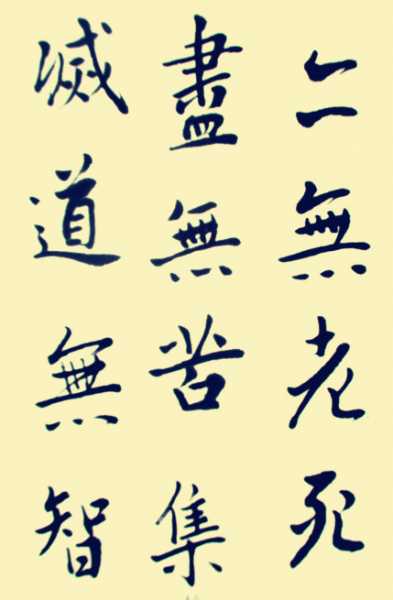 亦無老死
盡無苦集
滅道無智